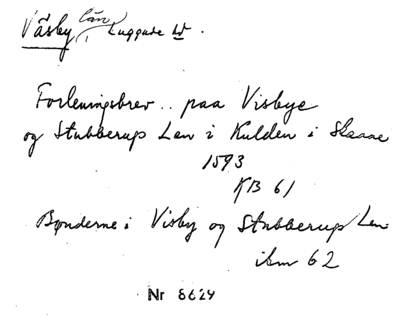 Väsby län Luggude hd.
Forleningsbrev .. paa Visbye
og Stubberup Len i Kulden i Skaane
1593
KB 61
Bønderne i Visby og Stubberup Len
ibm 62
Nr 8629